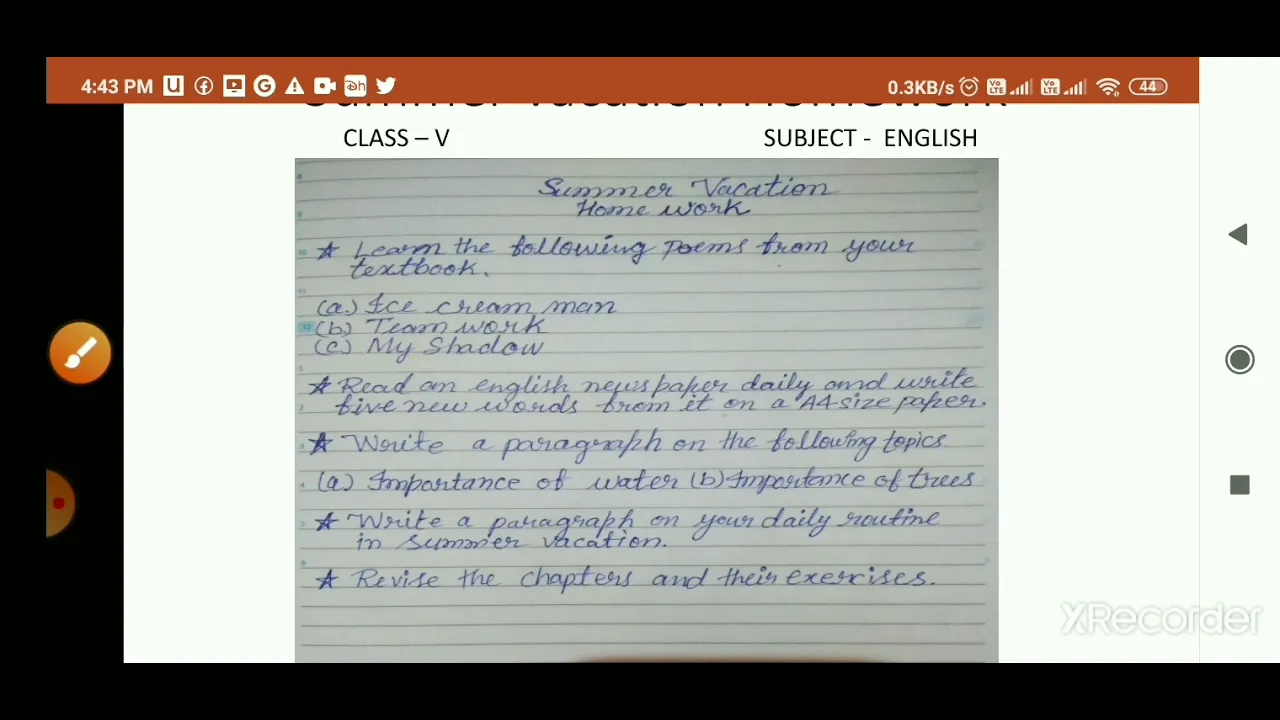 4:43 PM
0.3KB/s
44
Summer Vacation Homework
CLASS – V SUBJECT - ENGLISH
Summer Vacation
Home work
★ Learn the following poems from your
textbook.
(a.) Ice cream man
(b) Team work
(c) My Shadow
★ Read an english newspaper daily and write
five new words from it on a A4-size paper.
★ Write a paragraph on the following topics
(a) Importance of water (b) Importance of trees
★ Write a paragraph on your daily routine
in summer vacation.
★ Revise the chapters and their exercises.
XRecorder